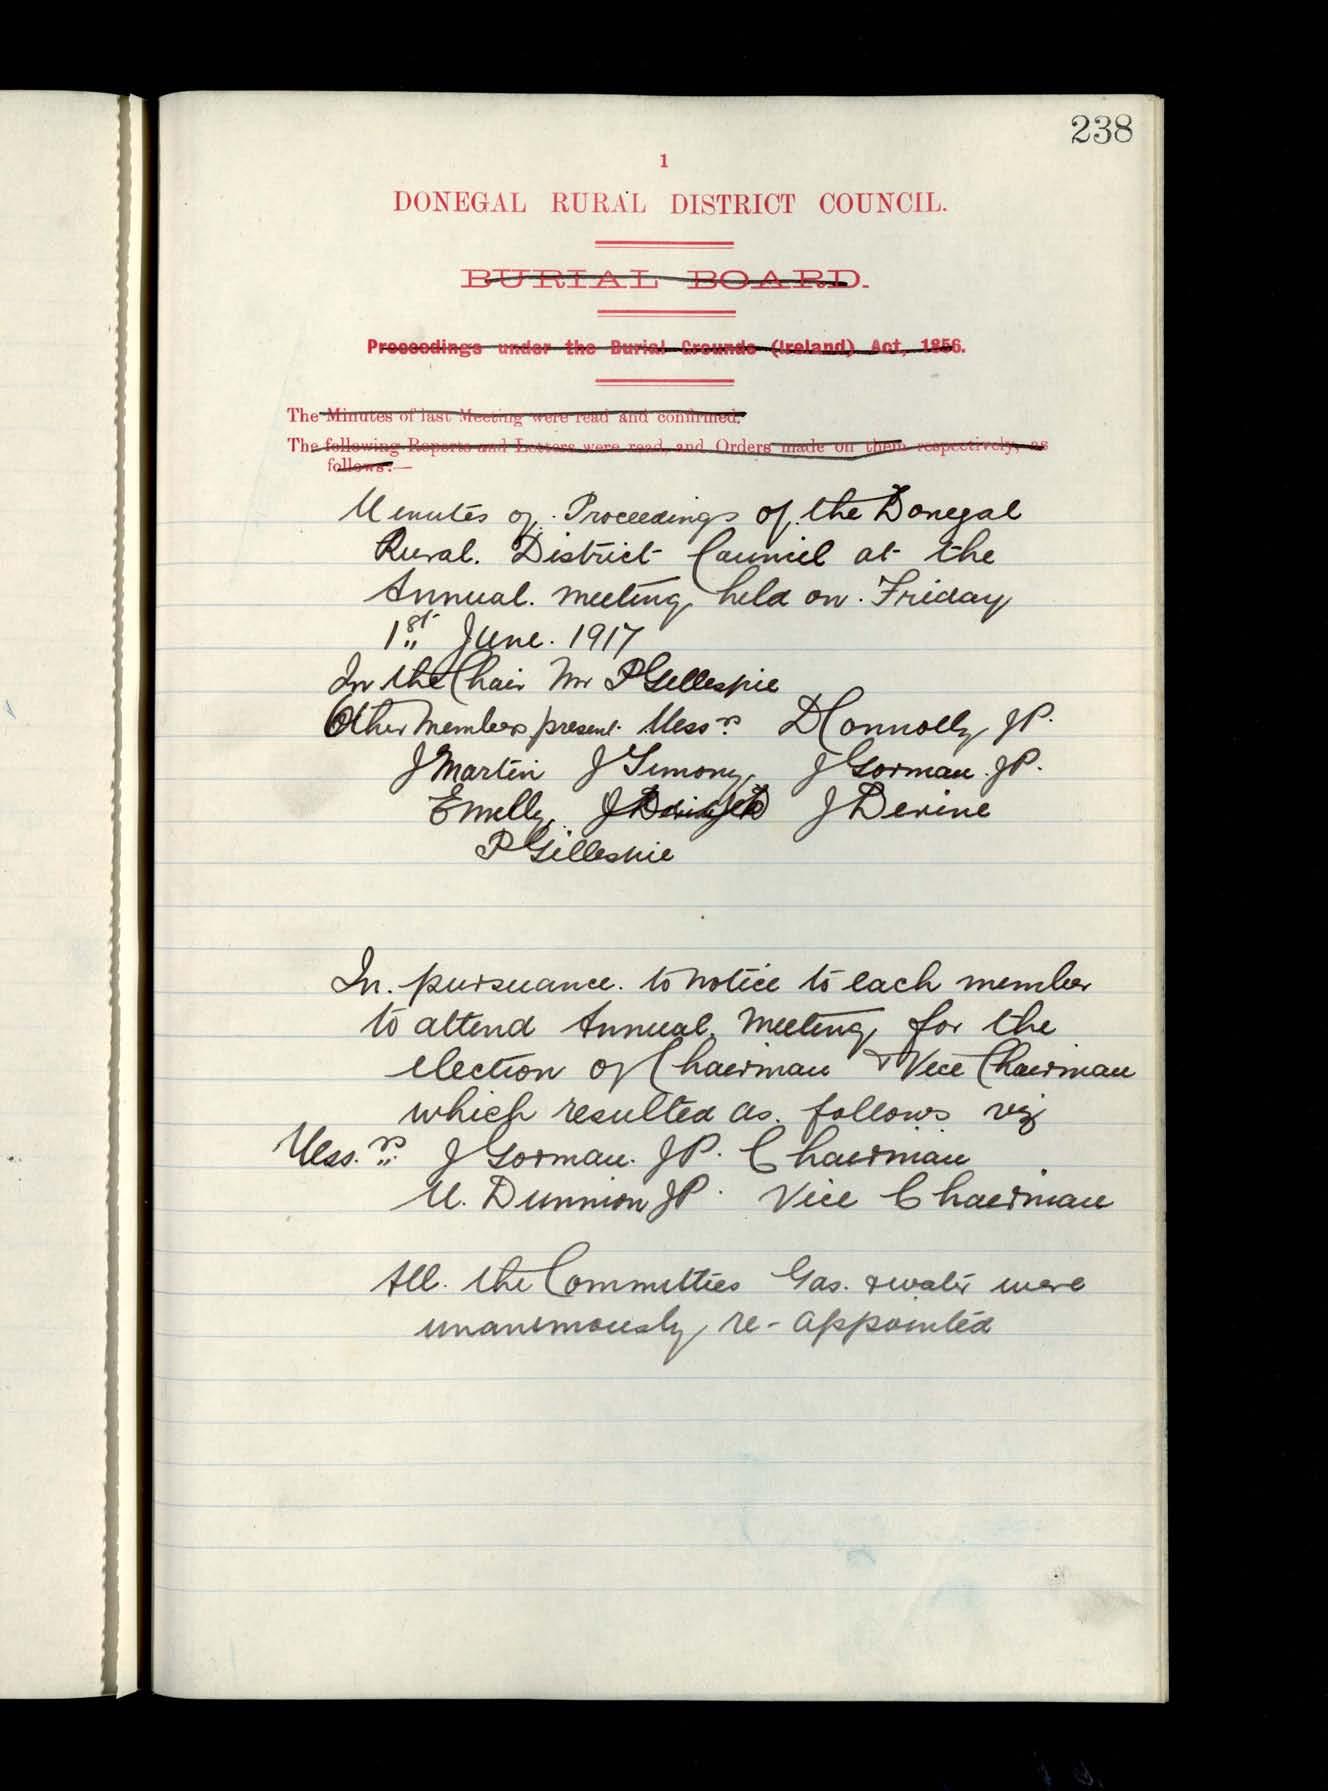 238
1
DONEGAL RURAL DISTRICT COUNCIL.
BURIAL BOARD.
Proceedings under the Burial Grounds (Ireland) Act, 1856.
The Minutes of last Meeting were read and confirmed.
The following Reports and Letters were read, and Orders made on them respectively, as
follows:—
Minutes of Proceedings of the Donegal
Rural. District Council at the
Annual. meeting held on. Friday
1st June. 1917
In the Chair Mr P Gillespie
Other Members present. Messrs D Connolly JP.
J Martin J Timony, J Gorman. JP.
E Melly, J Devine
P Gillespie
In. pursuance. to notice to each member
to attend Annual. Meeting for the
election of Chairman & Vice Chairman
which resulted as. follows viz
Messrs J Gorman. JP. Chairman
M. Dunnion JP. Vice Chairman
All. the Committies Gas. & water were
unanimously re-appointed